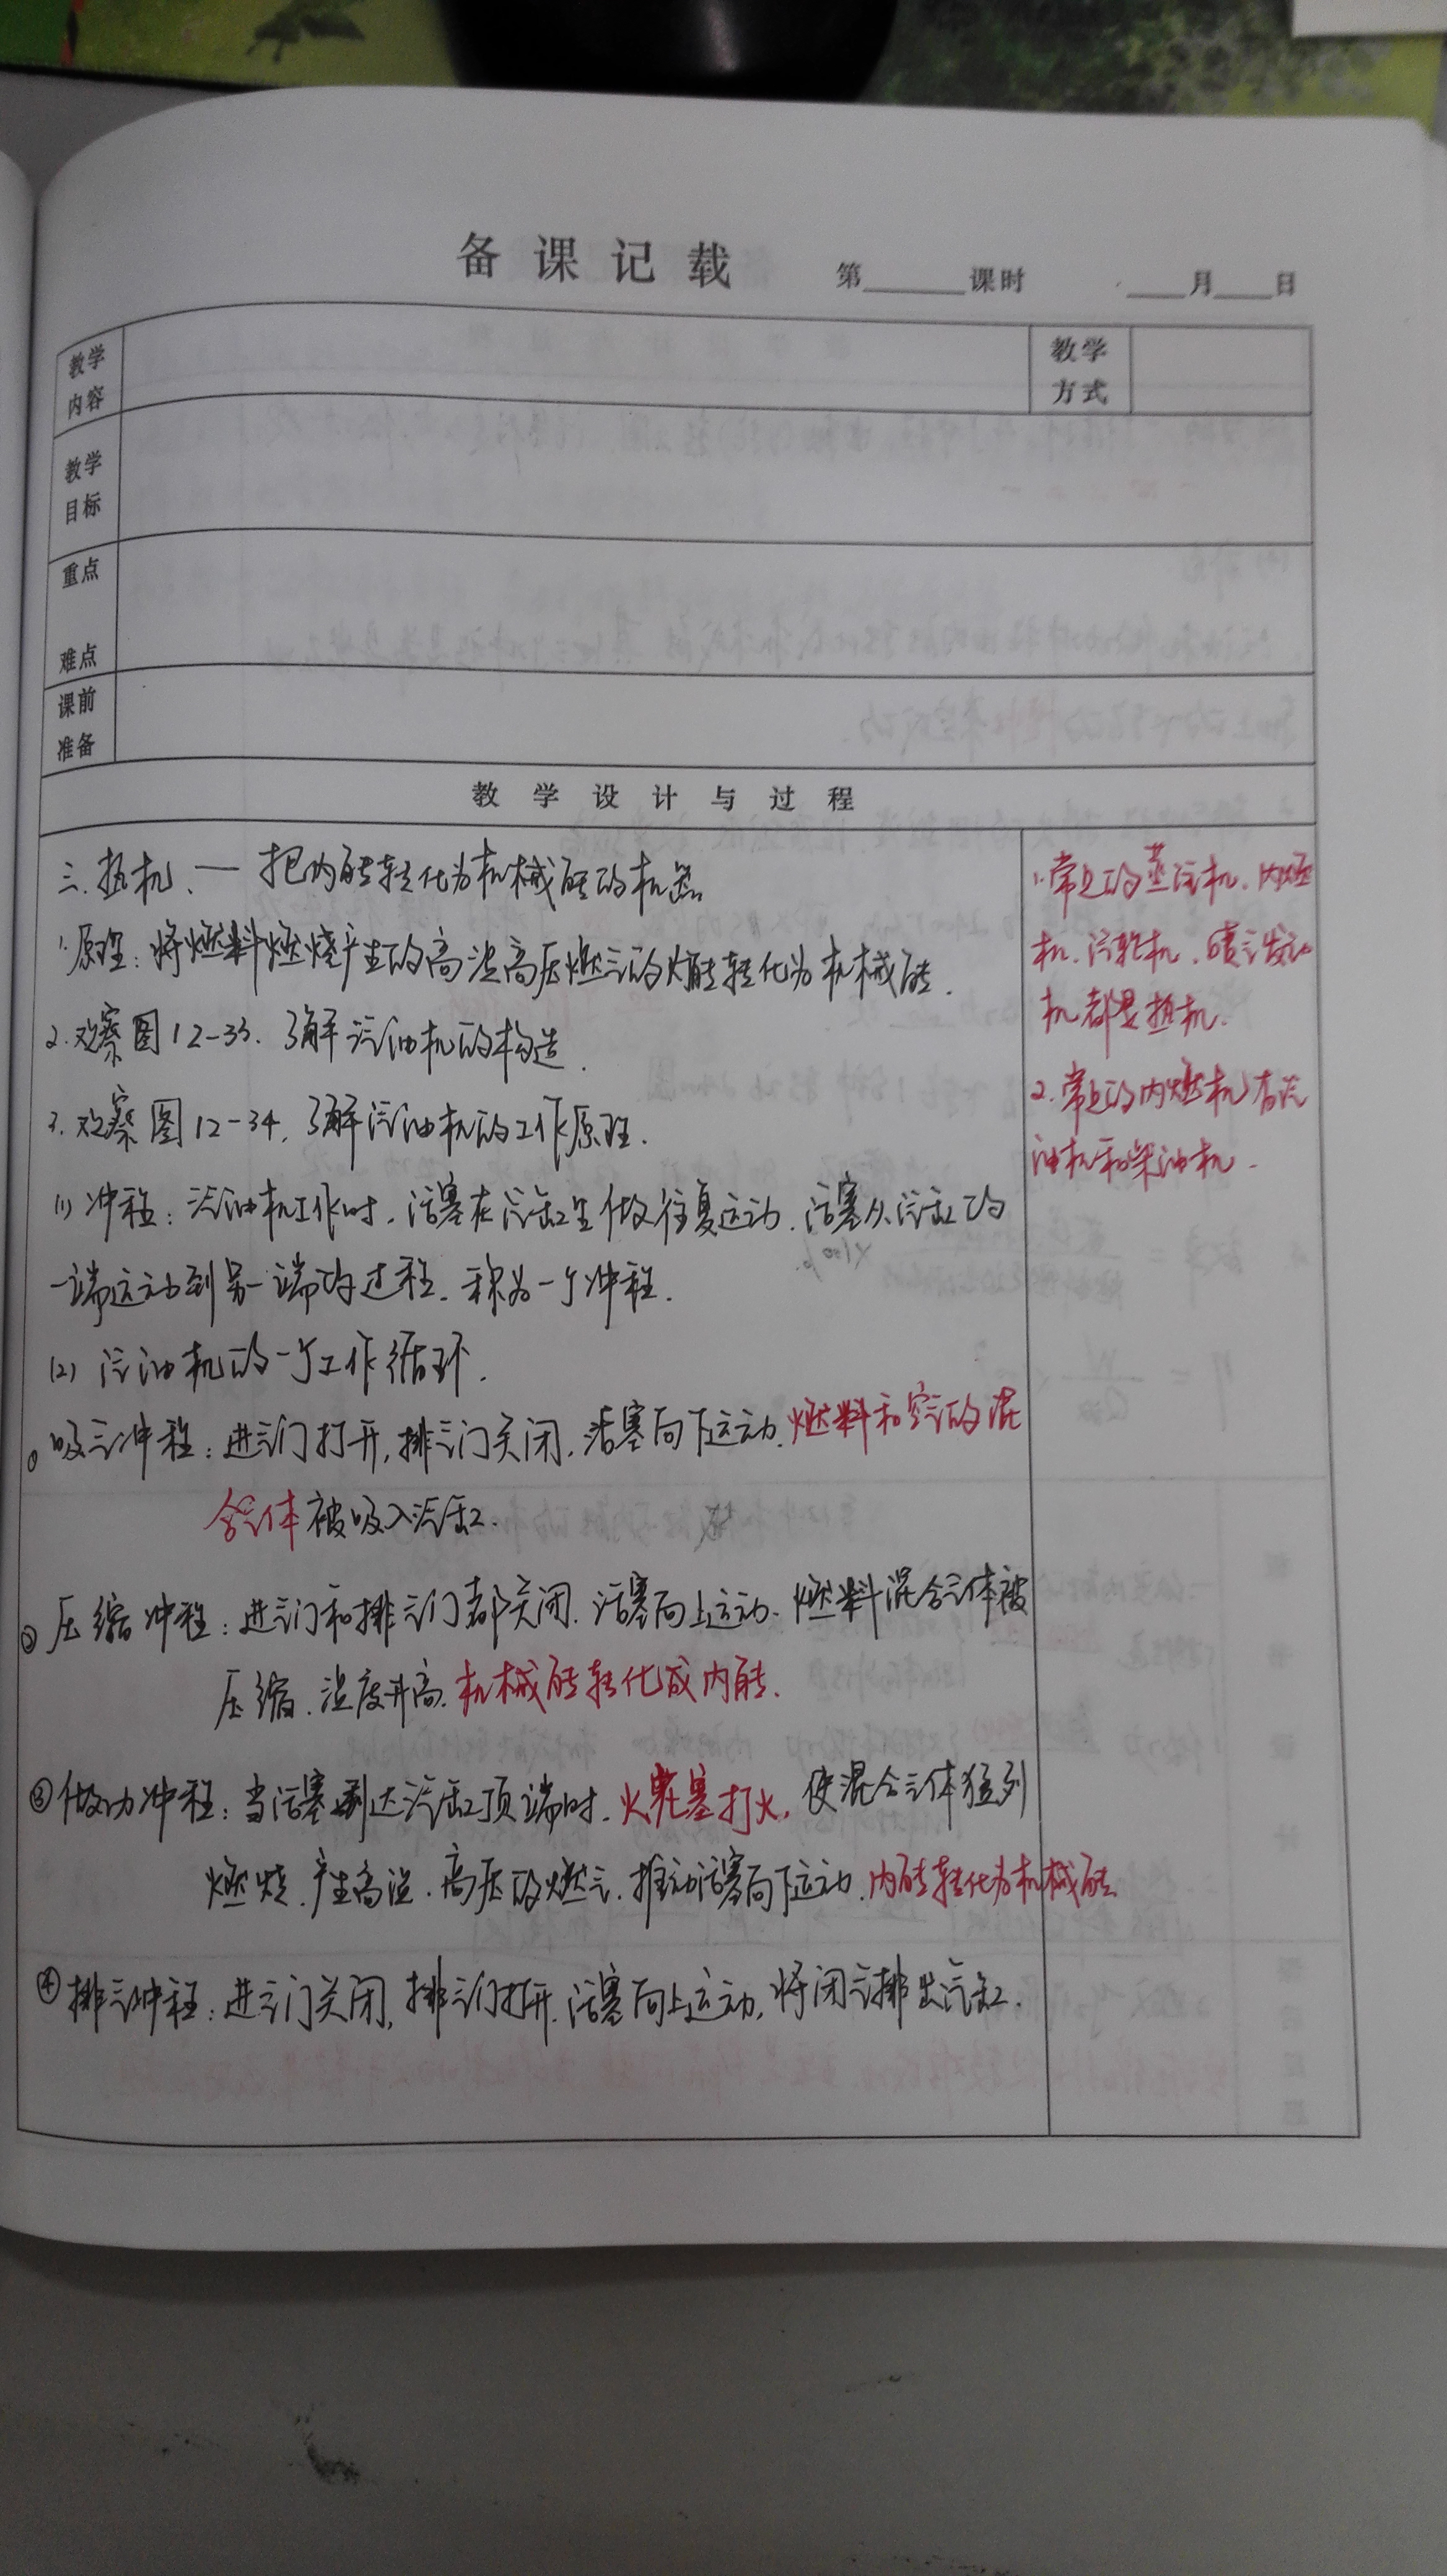 备课记载 第____课时 ____月____日
教学内容
教学方式
教学目标
重点
难点
课前准备
教学设计与过程
三.热机.一 把内能转化为机械能的机器
1.原理:将燃料燃烧产生的高温高压燃气的内能转化为机械能.
2.观察图12-33.了解汽油机的构造.
3.观察图12-34,了解汽油机的工作原理.
(1)冲程:汽油机工作时.活塞在汽缸里做往复运动.活塞从汽缸的
一端运动到另一端的过程.称为一个冲程.
(2)汽油机的一个工作循环.
①吸气冲程:进气门打开,排气门关闭.活塞向下运动.燃料和空气的混
合气体被吸入汽缸.
②压缩冲程:进气门和排气门都关闭.活塞向上运动.燃料混合气体被
压缩.温度升高.机械能转化成内能.
③做功冲程:当活塞到达汽缸顶端时.火花塞打火,使混合气体猛烈
燃烧.产生高温.高压的燃气.推动活塞向下运动.内能转化为机械能
④排气冲程:进气门关闭,排气门打开.活塞向上运动,将闭气排出汽缸.
1.常见的蒸汽机.内燃
机.汽轮机.喷气发动
机都是热机.
2.常见的内燃机有汽
油机和柴油机.